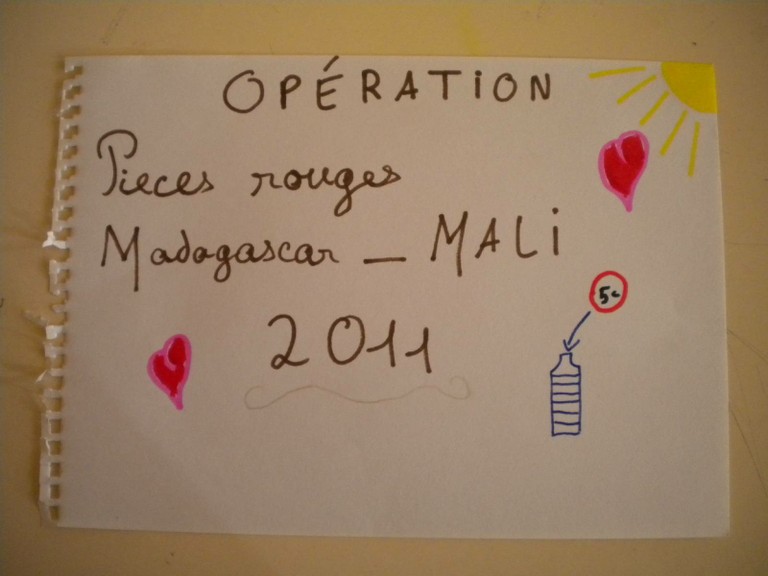 OPÉRATION
Pieces rouges
Madagascar _ MALi
2011
5c